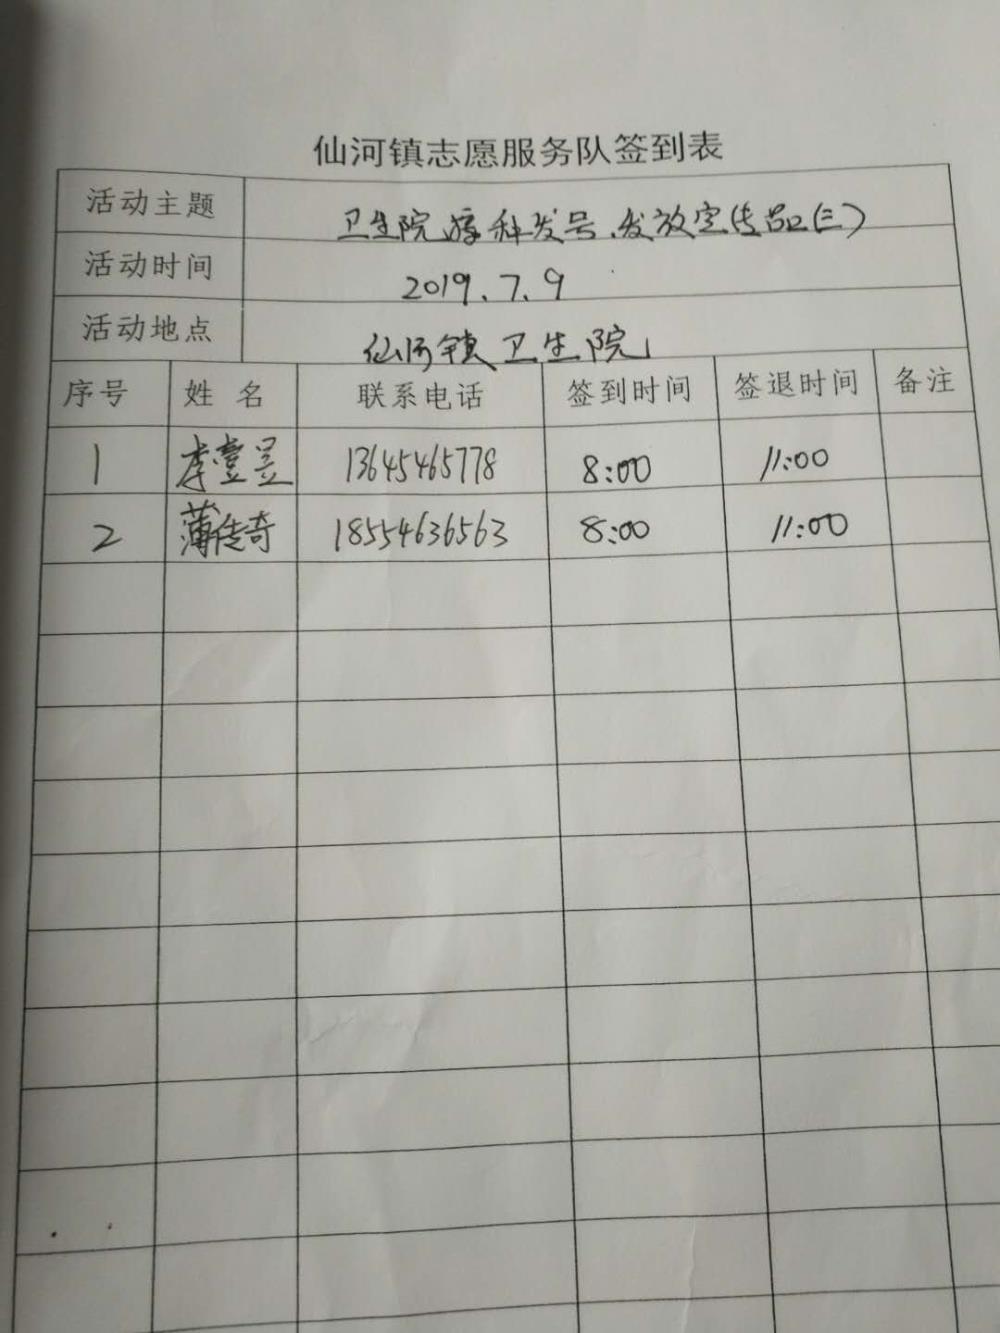 仙河镇志愿服务队签到表
活动主题 卫生院 科发号、发放宣传品(三)
活动时间 2019.7.9
活动地点 仙河镇卫生院
序号 姓 名 联系电话 签到时间 签退时间 备注
1 李壹昱 13645465778 8:00 11:00
2 薄传奇 18554636563 8:00 11:00